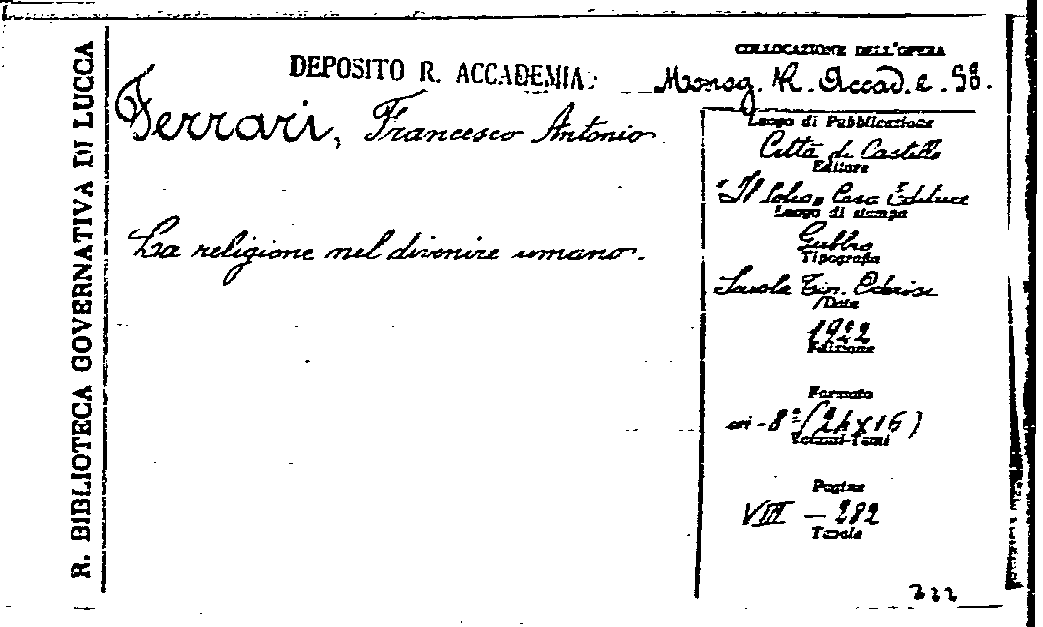 R. BIBLIOTECA GOVERNATIVA DI LUCCA
DEPOSITO R. ACCADEMIA:
COLLOCAZIONE DELL'OPERA
Monog. R. Accad. e. 58.
Ferrari, Francesco Antonio
La religione nel divenire umano.
Luogo di Pubblicazione
Città di Castello
Editore
"Il Solco" Casa Editrice
Luogo di stampa
Gubbio
Tipografia
Scuola Tip. Oderisi
Data
1922
Edizione
Formato
in-8° (24x16)
Volumi-Tomi
Pagine
VIII - 282
Tavole